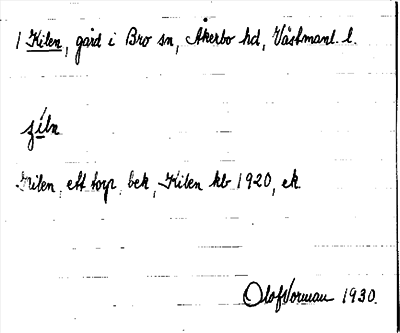 1 Kilen, gård i Bro sn, Åkerbo hd, Västmanl. l.
Kilen, ett torp, bek, Kilen kb 1920, ek.
Olof Vorman 1930.